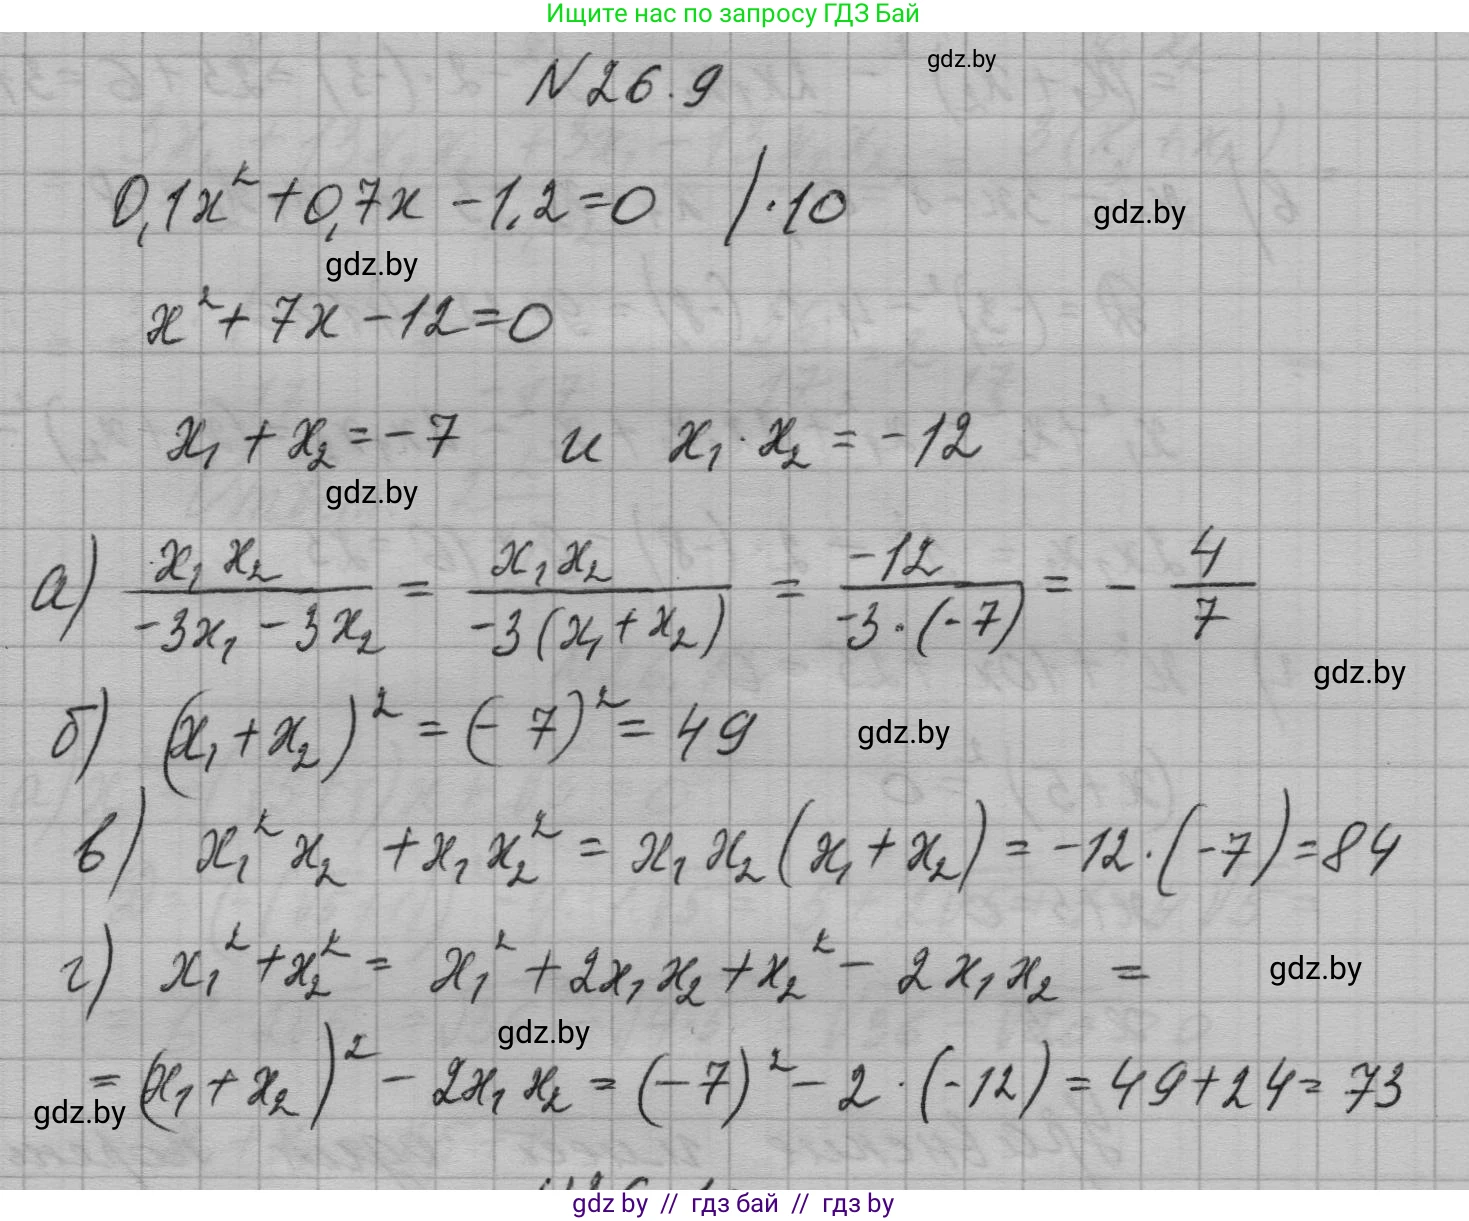 Ищите нас по запросу ГДЗ Бай
N26.9
gdz.by
0,1x² + 0,7x - 1,2 = 0 / · 10
gdz.by
gdz.by
x² + 7x - 12 = 0
x₁ + x₂ = - 7 и x₁ · x₂ = - 12
gdz.by
а) x₁ x₂ / -3x₁ - 3x₂ = x₁ x₂ / -3(x₁ + x₂) = -12 / -3 · (-7) = - 4/7
gdz.by
б) (x₁ + x₂)² = (- 7)² = 49
gdz.by
в) x₁² x₂ + x₁ x₂² = x₁ x₂ (x₁ + x₂) = -12 · (-7) = 84
г) x₁² + x₂² = x₁² + 2x₁ x₂ + x₂² - 2x₁ x₂ =
gdz.by
gdz.by
= (x₁ + x₂)² - 2x₁ x₂ = (-7)² - 2 · (-12) = 49 + 24 = 73
gdz.by
gdz by // гдз бай // гдз by